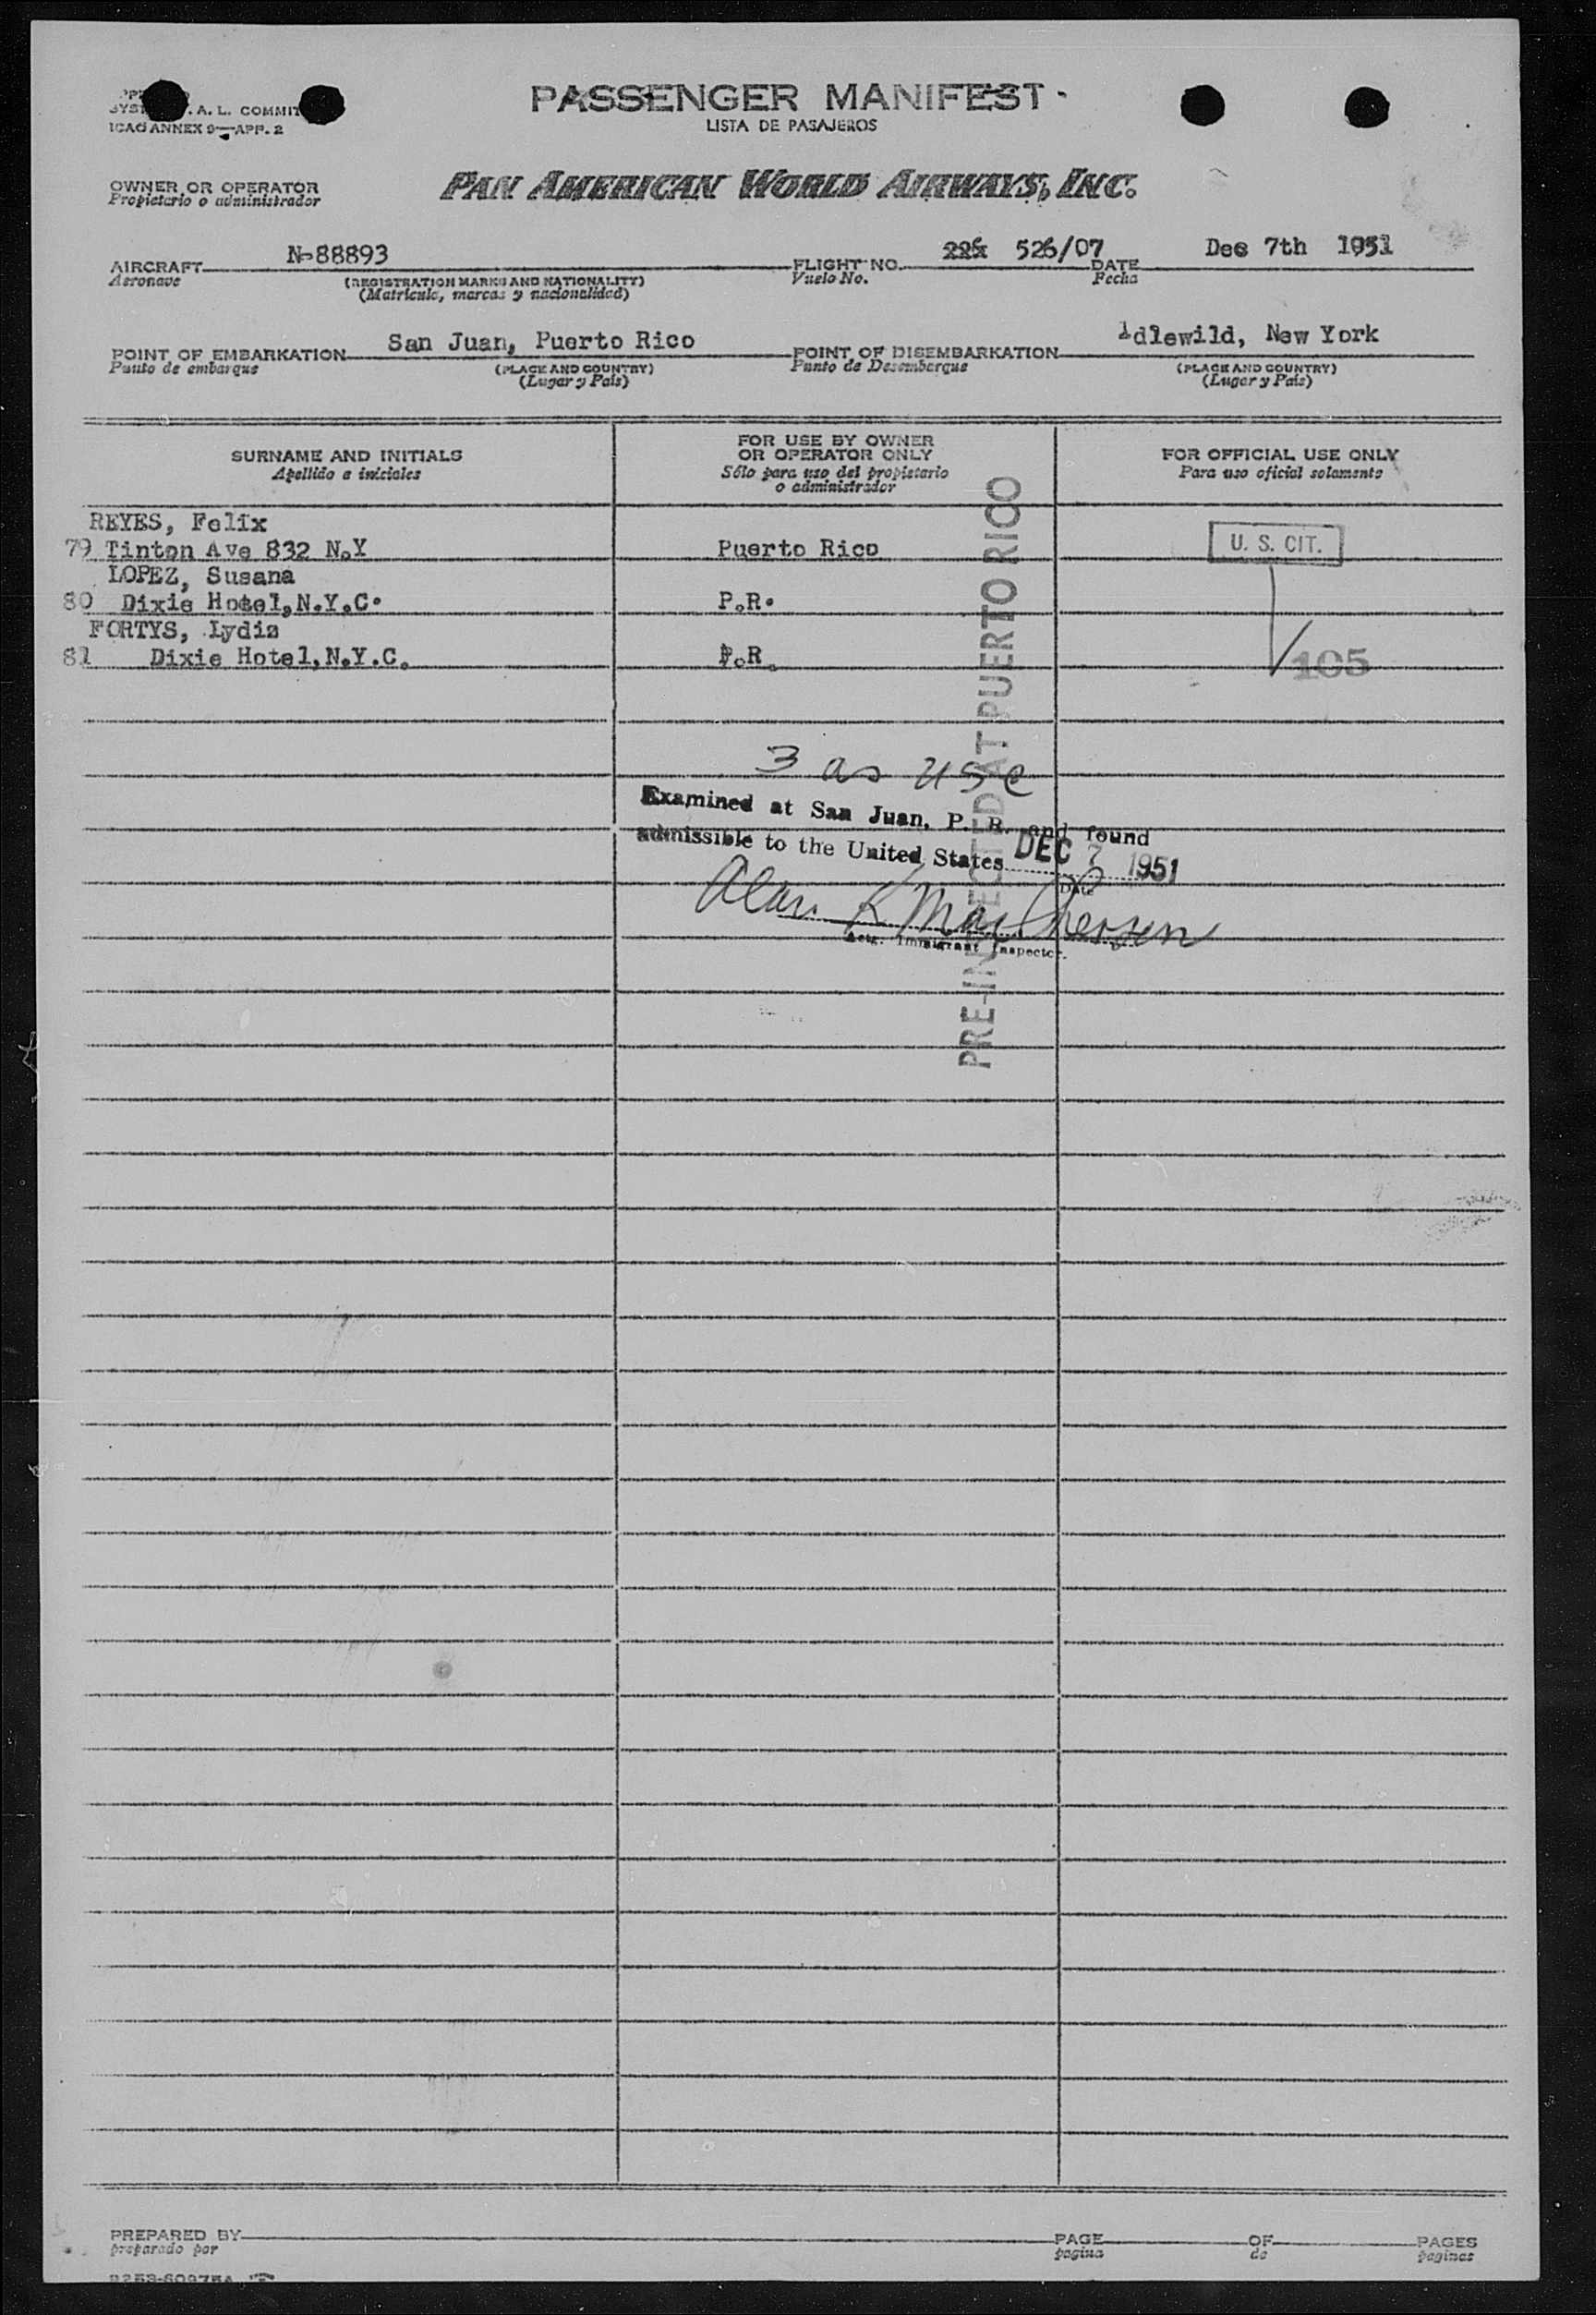 A. L. COMMIT
ICAO ANNEX 9—APP. 2
PASSENGER MANIFEST
LISTA DE PASAJEROS
OWNER OR OPERATOR
Propietario o administrador
PAN AMERICAN WORLD AIRWAYS, INC.
AIRCRAFT N-88893
Aeronave
(REGISTRATION MARKS AND NATIONALITY)
(Matricula, marcas y nacionalidad)
FLIGHT NO. 526/07
Vuelo No.
DATE Dec 7th 1951
Fecha
POINT OF EMBARKATION San Juan, Puerto Rico
Punto de embarque
(PLACE AND COUNTRY)
(Lugar y País)
POINT OF DISEMBARKATION Idlewild, New York
Punto de Desembarque
(PLACE AND COUNTRY)
(Lugar y País)
SURNAME AND INITIALS
Apellido e iniciales
FOR USE BY OWNER
OR OPERATOR ONLY
Sólo para uso del propietario
o administrador
FOR OFFICIAL USE ONLY
Para uso oficial solamente
REYES, Felix
79 Tinton Ave 832 N.Y Puerto Rico U. S. CIT.
LOPEZ, Susana
80 Dixie Hotel, N.Y.C. P.R.
FORTYS, Lydia
81 Dixie Hotel, N.Y.C. P.R. 105
PRE-INSPECTED AT PUERTO RICO
3 as USC
Examined at San Juan, P. R. and found
admissible to the United States DEC 7 1951
Date
Alan K MacPherson
Actg. Immigrant Inspector.
PREPARED BY
preparado por
PAGE
pagina
OF
de
PAGES
paginas